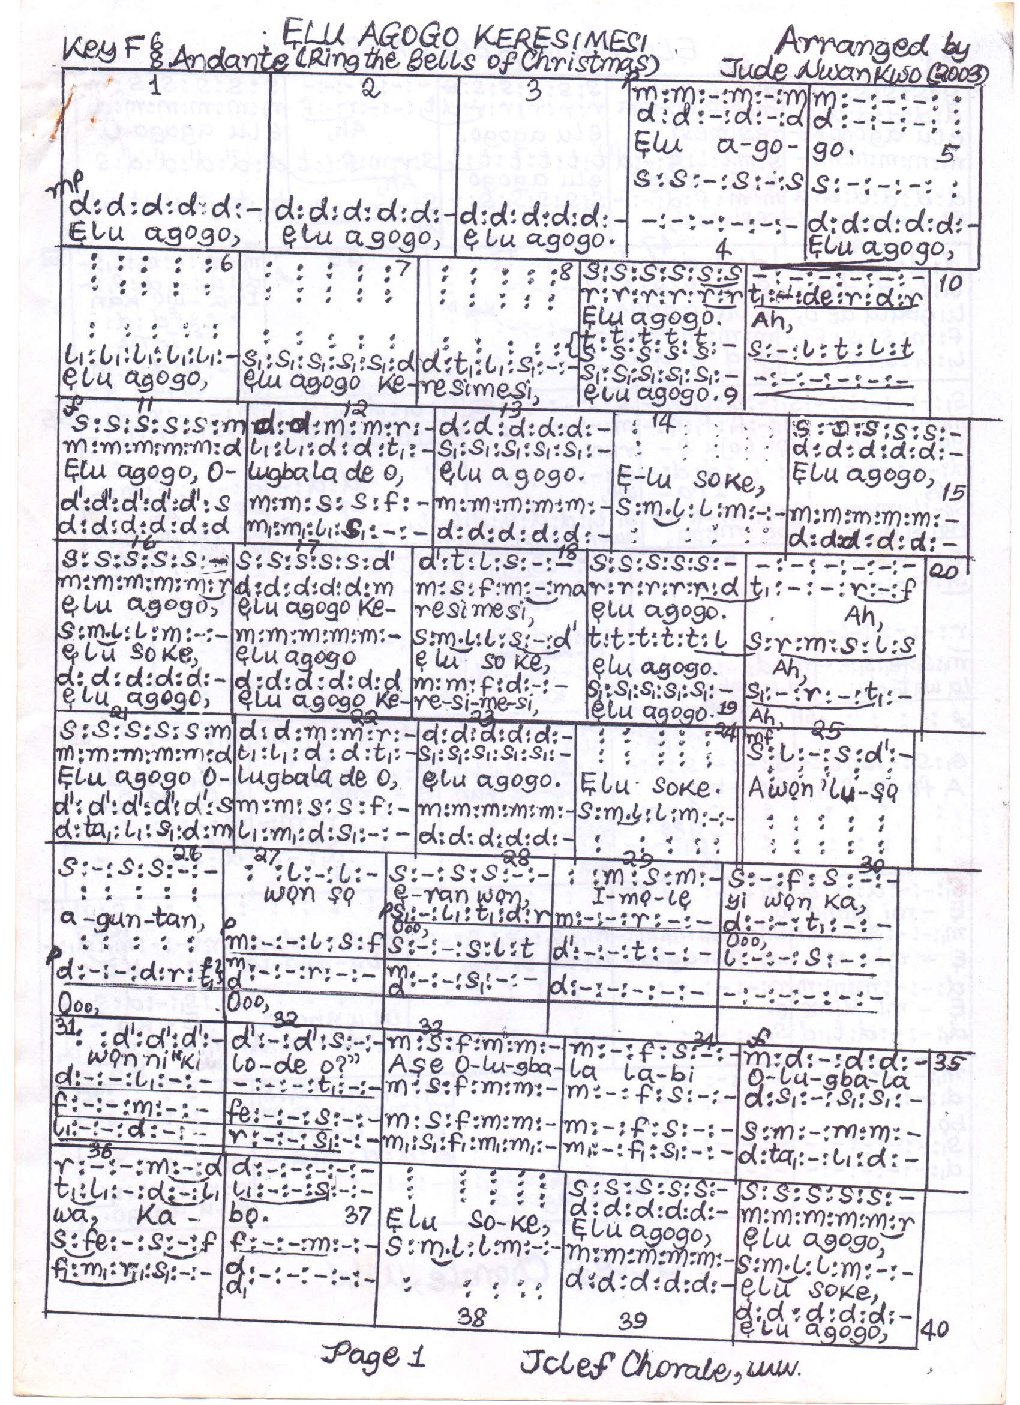 ẸLU AGOGO KERESIMESI
Key F 6/8 Andante (Ring the Bells of Christmas)
Arranged by
Jude Nwankwo (2003)
1 2 3
p
m:m:-:m:-:m m:-:-:-: :
d:d:-:d:-:d d:-:-:-: :
Ẹlu a-go- go. 5
s:s:-:s:-:s s:-:-:-: :
mp
d:d:d:d:d:- d:d:d:d:d:- d:d:d:d:d:- -:-:-:-:-:- d:d:d:d:d:-
Ẹlu agogo, ẹlu agogo, ẹlu agogo. 4 Ẹlu agogo,
6 7 8 s:s:s:s:s:s -:-:-:-:-:- 10
r:r:r:r:r:r t₁:-:de:r:d:r
Ẹlu agogo. Ah,
t:t:t:t:t:-
s:s:s:s:s:- s:-:l:t:l:t
l₁:l₁:l₁:l₁:l₁:- s₁:s₁:s₁:s₁:s₁:d d:t₁:l₁:s₁:-:- s₁:s₁:s₁:s₁:s₁:- -:-:-:-:-:-
ẹlu agogo, ẹlu agogo Ke- resimesi, ẹlu agogo. 9
f 11 12 13 14
s:s:s:s:s:m d:d:m:m:r:- d:d:d:d:d:- s:s:s:s:s:-
m:m:m:m:m:d l₁:l₁:d:d:t₁:- s₁:s₁:s₁:s₁:s₁:- d:d:d:d:d:-
Ẹlu agogo, O- lugbala de o, ẹlu agogo. Ẹ-lu soke, Ẹlu agogo, 15
d':d':d':d':d':s m:m:s:s:f:- m:m:m:m:m:- s:m.l:l:m:-:- m:m:m:m:m:-
d:d:d:d:d:d m₁:m₁:l₁:s:-:- d:d:d:d:d:- d:d:d:d:d:-
16 17 18 20
s:s:s:s:s:- s:s:s:s:s:d' d':t:l:s:-:- s:s:s:s:s:- -:-:-:-:-:-
m:m:m:m:m:r d:d:d:d:d:m m:s:f:m:-:ma r:r:r:r:r:d t₁:-:-:r:-:f
ẹlu agogo, ẹlu agogo Ke- resimesi, ẹlu agogo. Ah,
s:m.l:l:m:-:- m:m:m:m:m:- s:m.l:l:s:-:d' t:t:t:t:t:l s:r:m:s:l:s
ẹlu soke, ẹlu agogo ẹlu soke, ẹlu agogo. Ah,
d:d:d:d:d:- d:d:d:d:d:d m:m:f:d:-:- s₁:s₁:s₁:s₁:s₁:- s₁:-:r:-:t₁:
ẹlu agogo, ẹlu agogo Ke- re-si-me-si, ẹlu agogo. 19 Ah,
21 22 23 24 mf 25
s:s:s:s:s:m d:d:m:m:r:- d:d:d:d:d:- s:l:-:s:d':-
m:m:m:m:m:d t₁:l₁:d:d:t₁:- s₁:s₁:s₁:s₁:s₁:-
Ẹlu agogo O- lugbala de o, ẹlu agogo. Ẹlu soke. Awọn 'lu-sọ
d':d':d':d':d':s m:m:s:s:f:- m:m:m:m:m:- s:m.l:l:m:-:-
d:ta₁:l₁:s₁:d:m l₁:m₁:d:s₁:-:- d:d:d:d:d:-
26 27 28 29 30
s:-:s:s:-:- : :l:-:l:- s:-:s:s:-:- : :m:s:m:- s:-:f:s:-:-
wọn sọ ẹ-ran wọn, I-mọ-lẹ yi wọn ka,
a-gun-tan, p s₁:-:l₁:t₁:d:r m:-:-:r:-:- d:-:-:t₁:-:-
Ooo, Ooo,
p m:-:-:l:s:f s:-:-:s:l:t d':-:-:t:-:- l:-:-:s:-:-
p d:-:-:d:r:t₁ m:-:-:r:-:- m:-:-:s₁:-:- d:-:-:-:-:- -:-:-:-:-:-
d d
Ooo, Ooo,
31 32 33 34 f
: :d':d':d':- d':-:d':s:-:- m:s:f:m:m:- m:-:f:s:-:- m:d:-:d:d:- 35
wọn ni "Ki lo-de o?" Aṣẹ O-lu-gba- la la-bi O-lu-gba-la
d:-:-:l₁:-:- -:-:-:t₁:-:- m:s:f:m:m:- m:-:f:s:-:- d:s₁:-:s₁:s₁:-
f:-:-:m:-:- fe:-:-:s:-:- m:s:f:m:m:- m:-:f:s:-:- s:m:-:m:m:-
l₁:-:-:d:-:- r:-:-:s₁:-:- m₁:s₁:f₁:m₁:m₁:- m₁:-:f₁:s₁:-:- d:ta₁:-:l₁:d:-
36
r:-:-:m:-:d d:-:-:-:-:- s:s:s:s:s:- s:s:s:s:s:-
t₁:l₁:-:d:-:l₁ l₁:-:-:s:-:- d:d:d:d:d:- m:m:m:m:m:r
wa, Ka- bọ. 37 Ẹlu so-ke, Ẹlu agogo, ẹlu agogo,
s:fe:-:s:-:f f:-:-:m:-:- s:m.l:l:m:-:- m:m:m:m:m:- s:m.l:l:m:-:-
f₁:m₁:r₁:s₁:-:- d:-:-:-:-:- d:d:d:d:d:- ẹlu soke,
d₁ d:d:d:d:d:-
38 39 ẹlu agogo, 40
Page 1 Jclef Chorale, uuu.